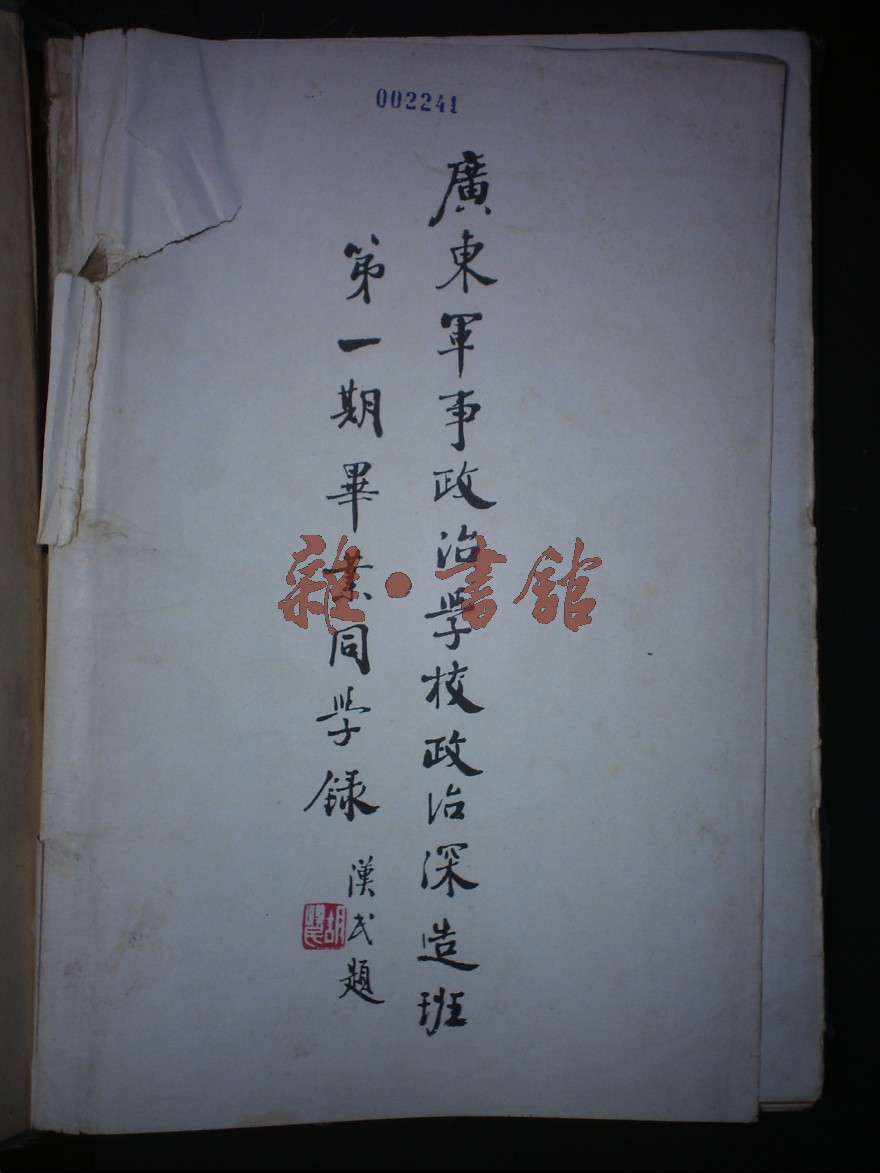 002241
廣東軍事政治學校政治深造班
第一期畢業同學録
漢民題
胡漢民
雜·書館